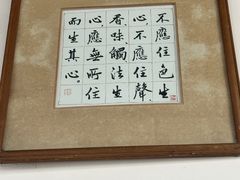 不應住色生
心不應住聲
香味觸法生
心應無所住
而生其心